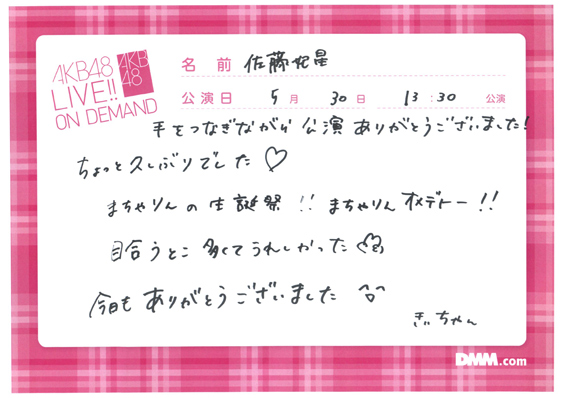 AKB48
LIVE!!
ON DEMAND
AKB
48
名 前 佐藤妃星
公演日 5月 30日 13:30 公演
手をつなぎながら 公演 ありがとうございました!
ちょっと久しぶりでした♡
まちゃりんの生誕祭!! まちゃりんオメデトー!!
目合うとこ多くてうれしかった
今日も ありがとうございました ^o^
きぃちゃん
DMM.com